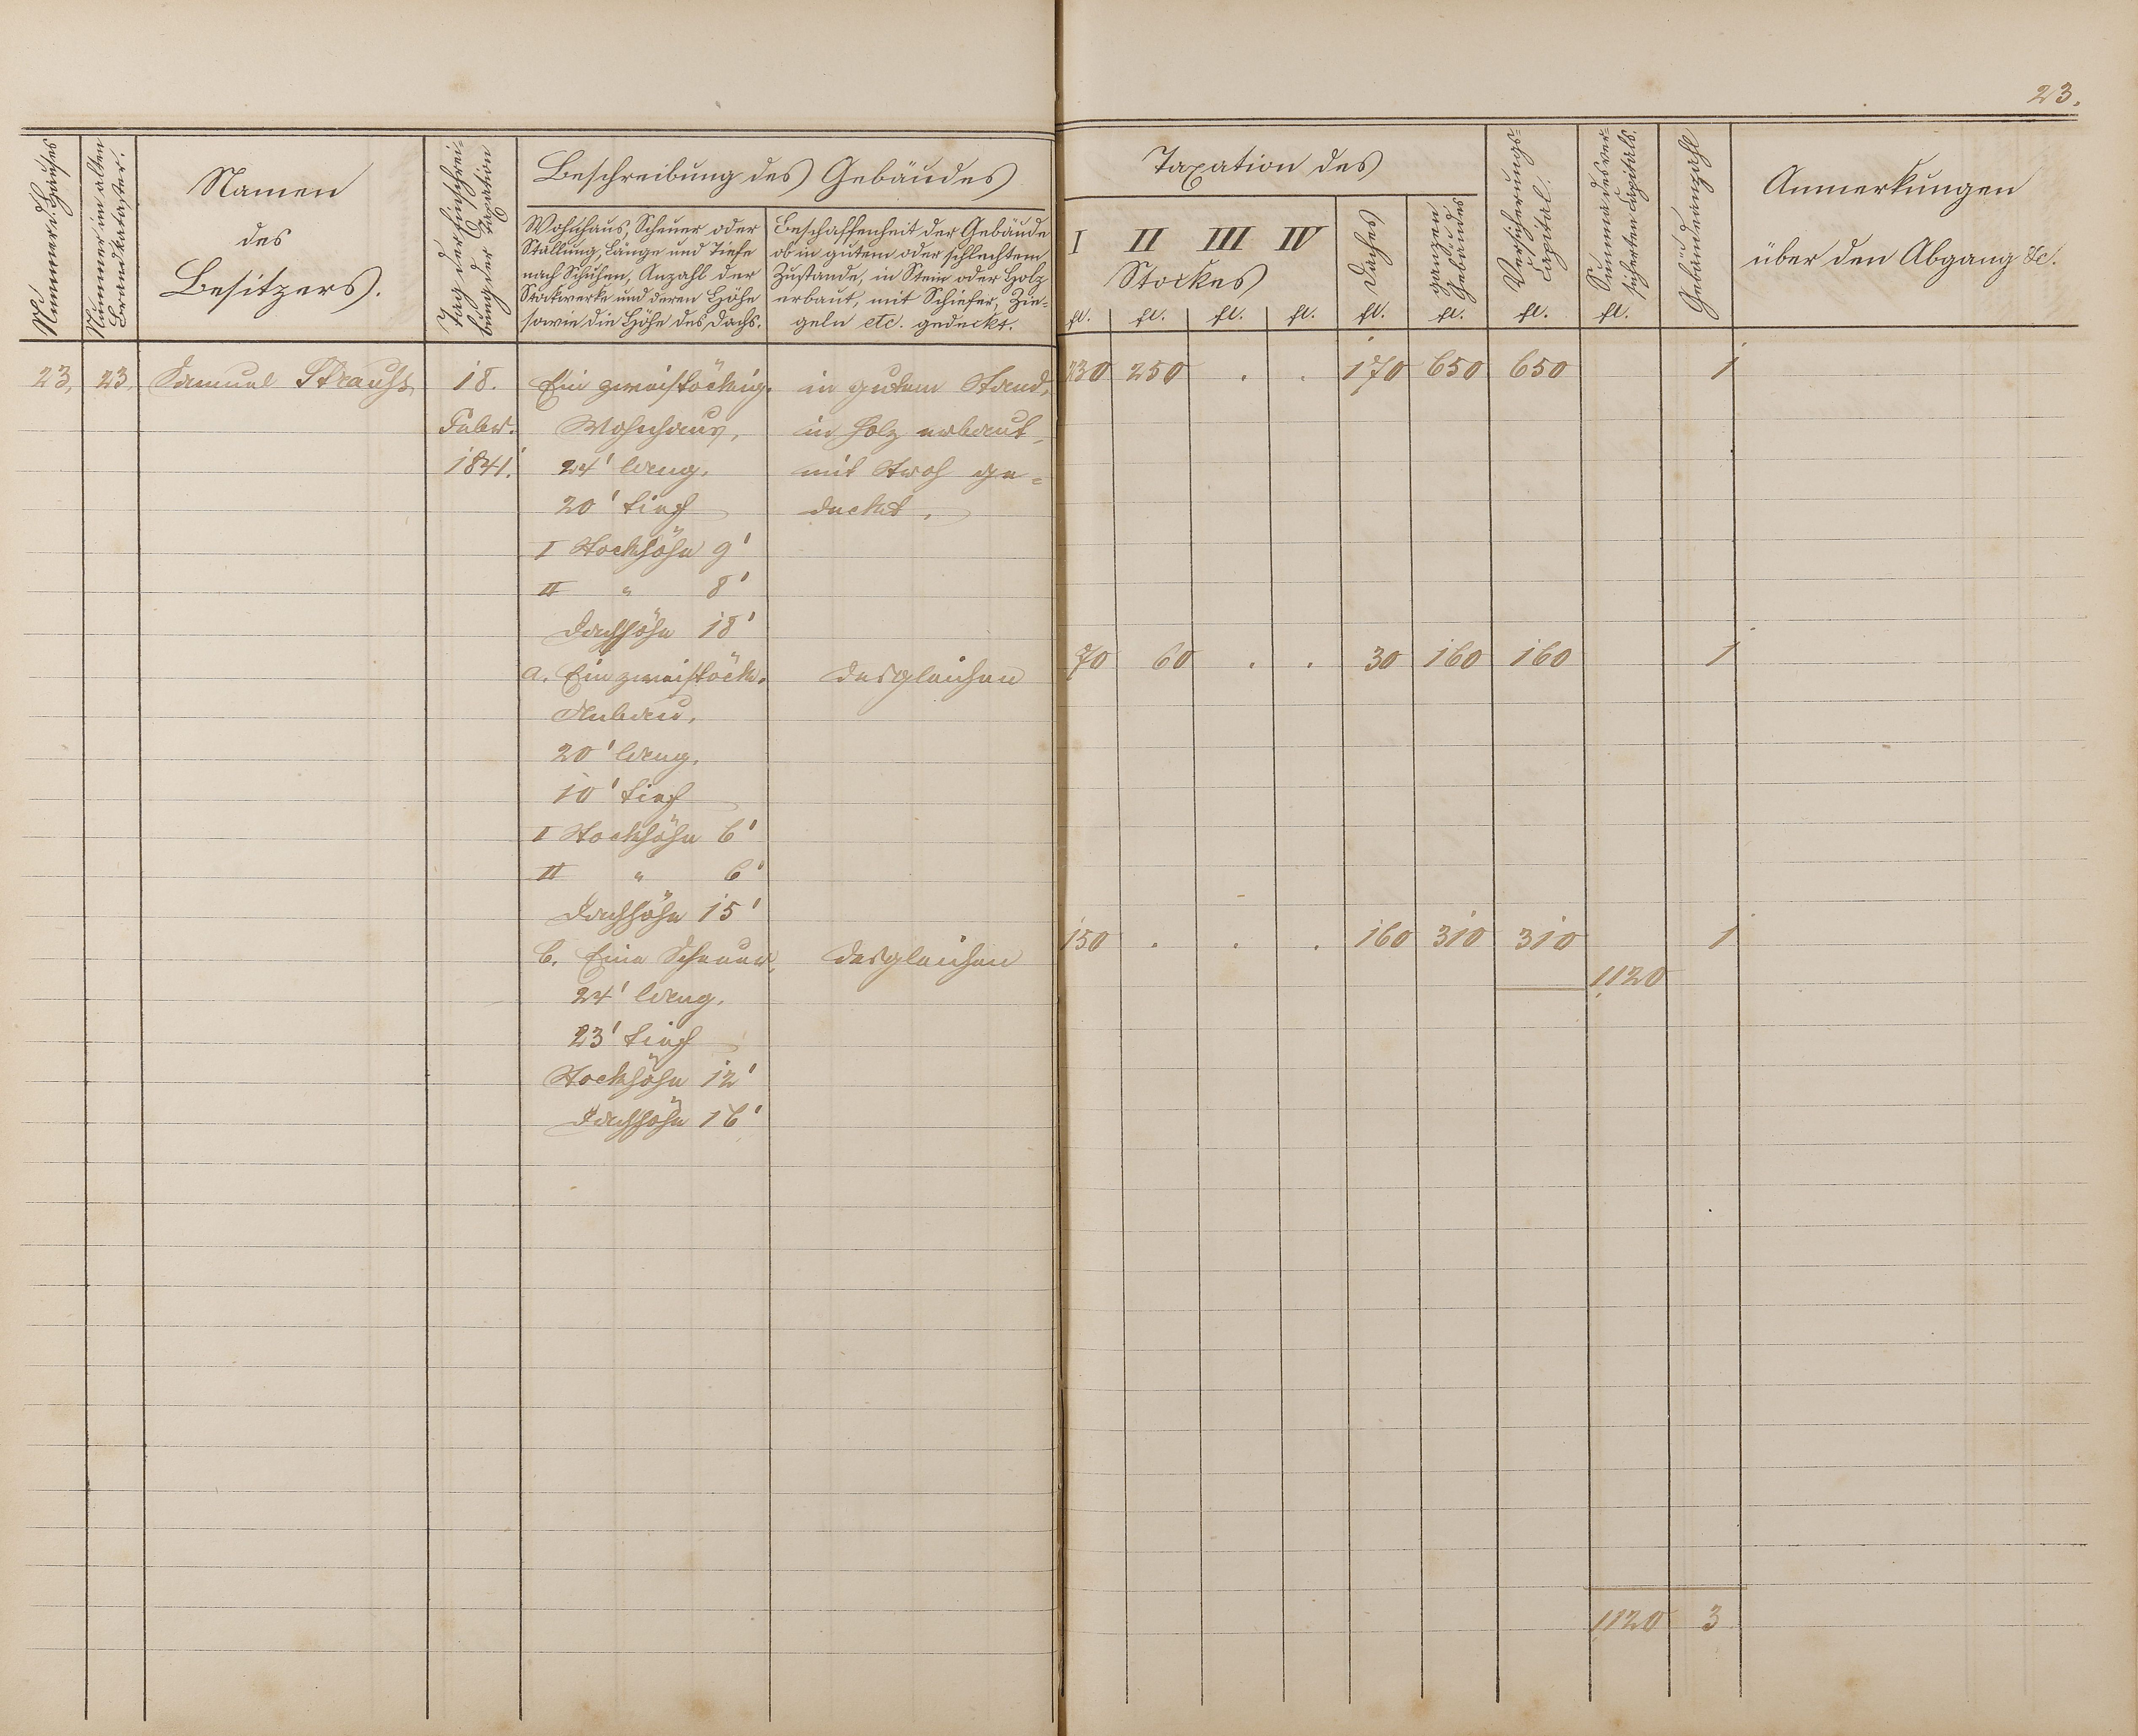 23.
No Nummer d. Hauses
Nummer im alten
Brandkataster.
Namen
des
Besitzers.
Tag der Einschrei-
bung der Taxation
Beschreibung des Gebäudes
Wohnhaus, Scheuer oder
Stallung, Länge und Tiefe
nach Schuhen, Anzahl der
Stockwerke und deren Höhe
sowie die Höhe des Dachs.
Beschaffenheit der Gebäude
ob in gutem oder schlechtem
Zustande, in Stein oder Holz
erbaut, mit Schiefer, Zie-
geln etc. gedeckt.
Taxation des
I II III IV
Stockes
Daches
ganzen
Gebäudes
Versicherungs-
Capital.
Summa des ver-
sicherten Capitals.
Gebäudeanzahl
Anmerkungen
über den Abgang &c.
fl. fl. fl. fl. fl. fl. fl. fl.
23, 23, Samuel Strauß 18. Ein zweistöckig. in gutem Stand, 230 250 . . 170 650 650 1
Febr. Wohnhaus, in Holz erbaut
1841. 24' lang, mit Stroh ge-
20' tief deckt.
I Stockhöhe 9'
II " 8'
Dachhöhe 18'
a. Ein zweistöck. desgleichen 70 60 . . 30 160 160 1
Anbau,
20' lang,
10' tief
I Stockhöhe 6'
II " 6'
Dachhöhe 15'
b. Eine Scheuer, desgleichen 150 . . . 160 310 310 1
24' lang, 1120
23' tief
Stockhöhe 12'
Dachhöhe 16'
1120 3